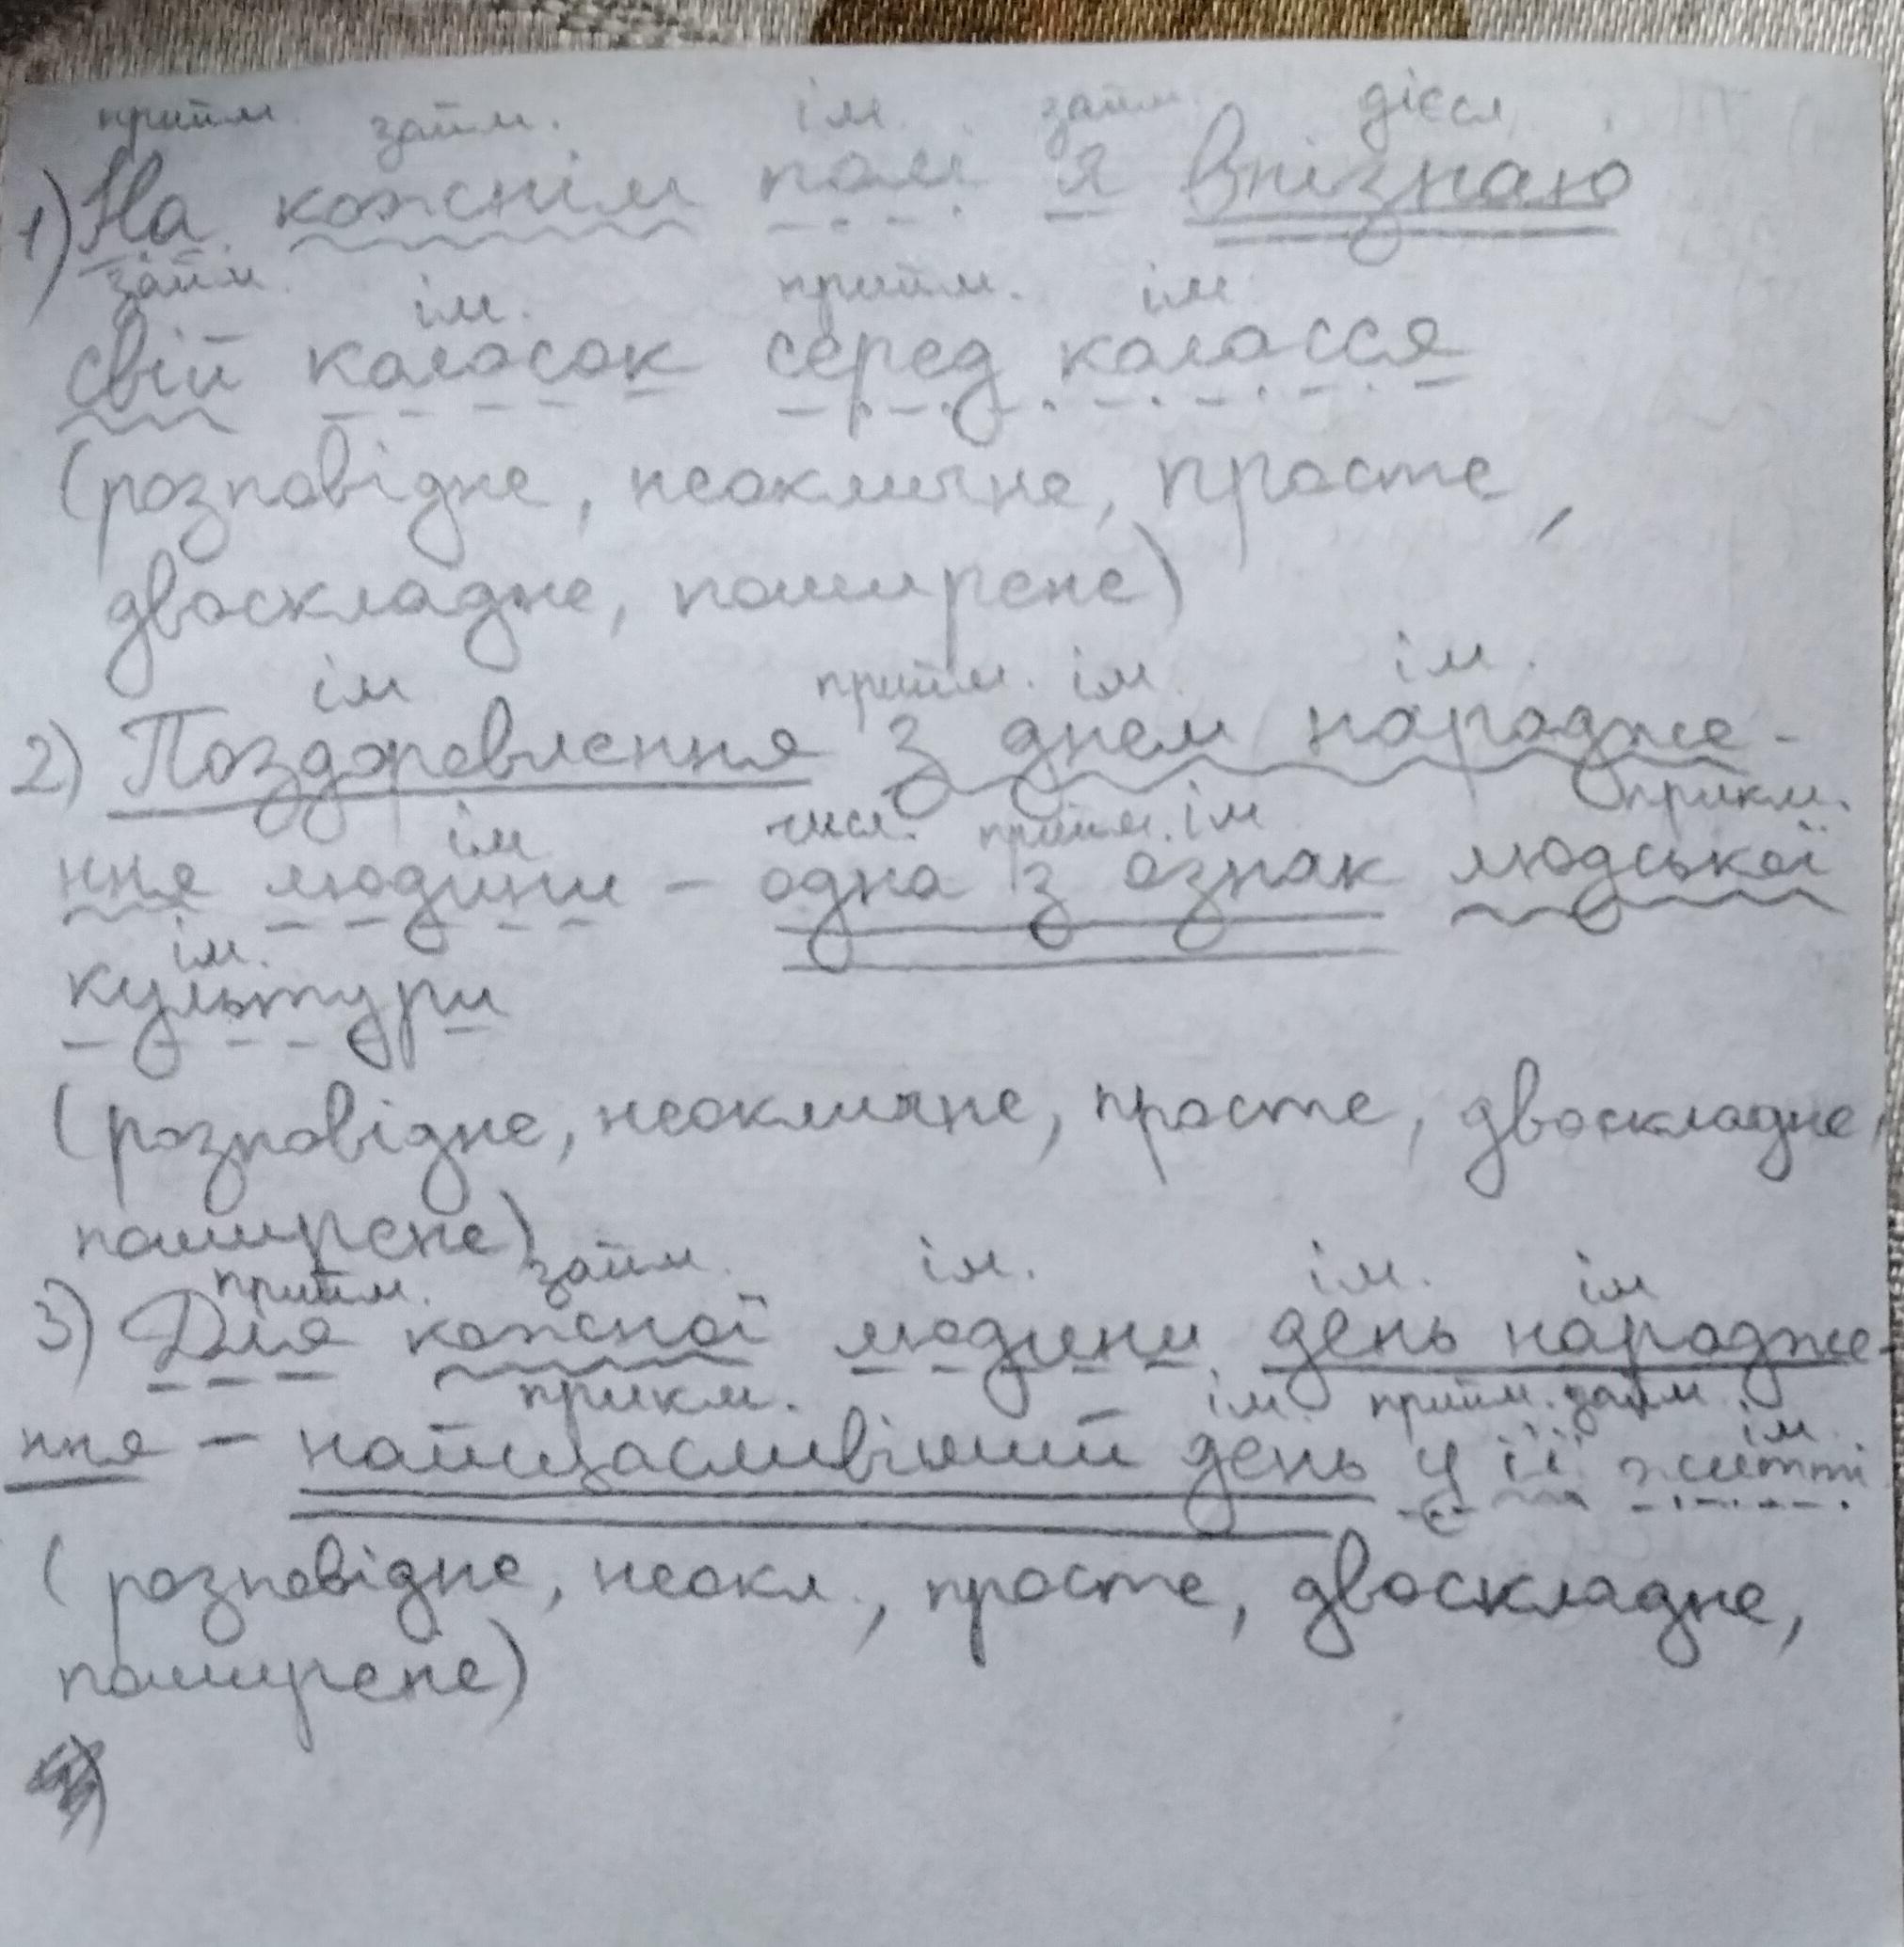 прийм. займ. ім. займ. дієсл.
1) На кожнім полі я впізнаю
займ. ім. прийм. ім.
свій колосок серед колосся
(розповідне, неокличне, просте,
двоскладне, поширене)
ім прийм. ім. ім.
2) Поздоровлення з днем народже-
ім числ. прийм. ім. прикм.
ння людини – одна з ознак людської
ім.
культури
(розповідне, неокличне, просте, двоскладне,
поширене)
прийм. займ. ім. ім. ім
3) Для кожної людини день народже-
прикм. ім. прийм. займ. ім.
ння – найщасливіший день у її житті
(розповідне, неокл., просте, двоскладне,
поширене)